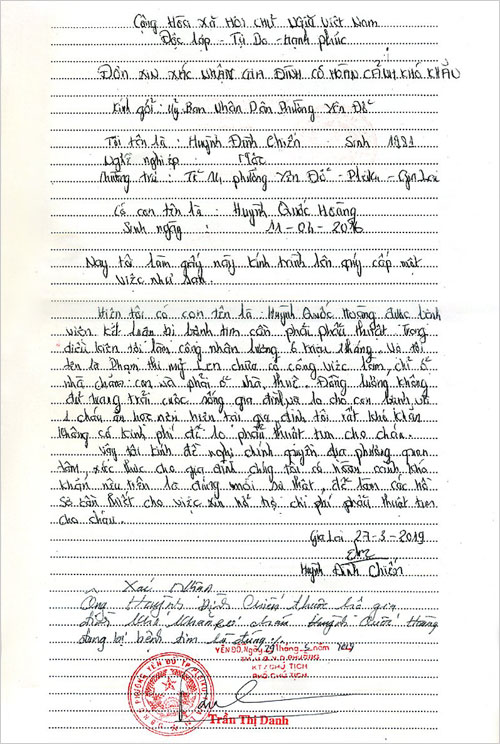 Cộng Hòa Xã Hội Chủ Nghĩa Việt Nam
Độc lập - Tự Do - Hạnh phúc
ĐƠN XIN XÁC NHẬN GIA ĐÌNH CÓ HOÀN CẢNH KHÓ KHĂN
Kính gửi : Uỷ Ban Nhân Dân Phường Yên Đỗ
Tôi tên là : Huỳnh Đình Chiến Sinh 1981
Nghề nghiệp : Mộc
Thường trú : Tổ 14, phường Yên Đỗ - Pleiku - Gia Lai
Có con tên là : Huỳnh Quốc Hoàng
Sinh ngày : 11-04-2016
Nay tôi làm giấy này kính trình lên quý cấp một
việc như sau.
Hiện tôi có con tên là : Huỳnh Quốc Hoàng được bệnh
viện kết luận bị bệnh tim cần phải phẫu thuật. Trong
điều kiện tôi làm công nhân lương 6 triệu 1 tháng. Vợ tôi
tên là Phạm thị mỹ Len chưa có công việc làm, chỉ ở
nhà chăm con và phải ở nhà thuê. Đồng lương không
đủ trang trải cuộc sống gia đình và lo cho con bệnh và
1 cháu ăn học nên hiện tại gia đình tôi rất khó khăn
không có kinh phí để lo phẫu thuật tim cho cháu.
Vậy tôi kính đề nghị chính quyền địa phương quan
tâm, xác thực cho gia đình chúng tôi có hoàn cảnh khó
khăn nêu trên là đúng sự thật, để làm các hồ
sơ cần thiết cho việc xin hỗ trợ chi phí phẫu thuật tim
cho cháu.
Gia Lai 27-3-2019
Huỳnh Đình Chiến
Xác nhận
Ông Huỳnh Đình Chiến thuộc hộ gia
đình khó khăn, có cháu Huỳnh Quốc Hoàng
đang bị bệnh tim là đúng.
YÊN ĐỖ, Ngày 29 tháng năm 2019
TM. U.B.N.D PHƯỜNG
KT/CHỦ TỊCH
PHÓ CHỦ TỊCH
Trần Thị Danh